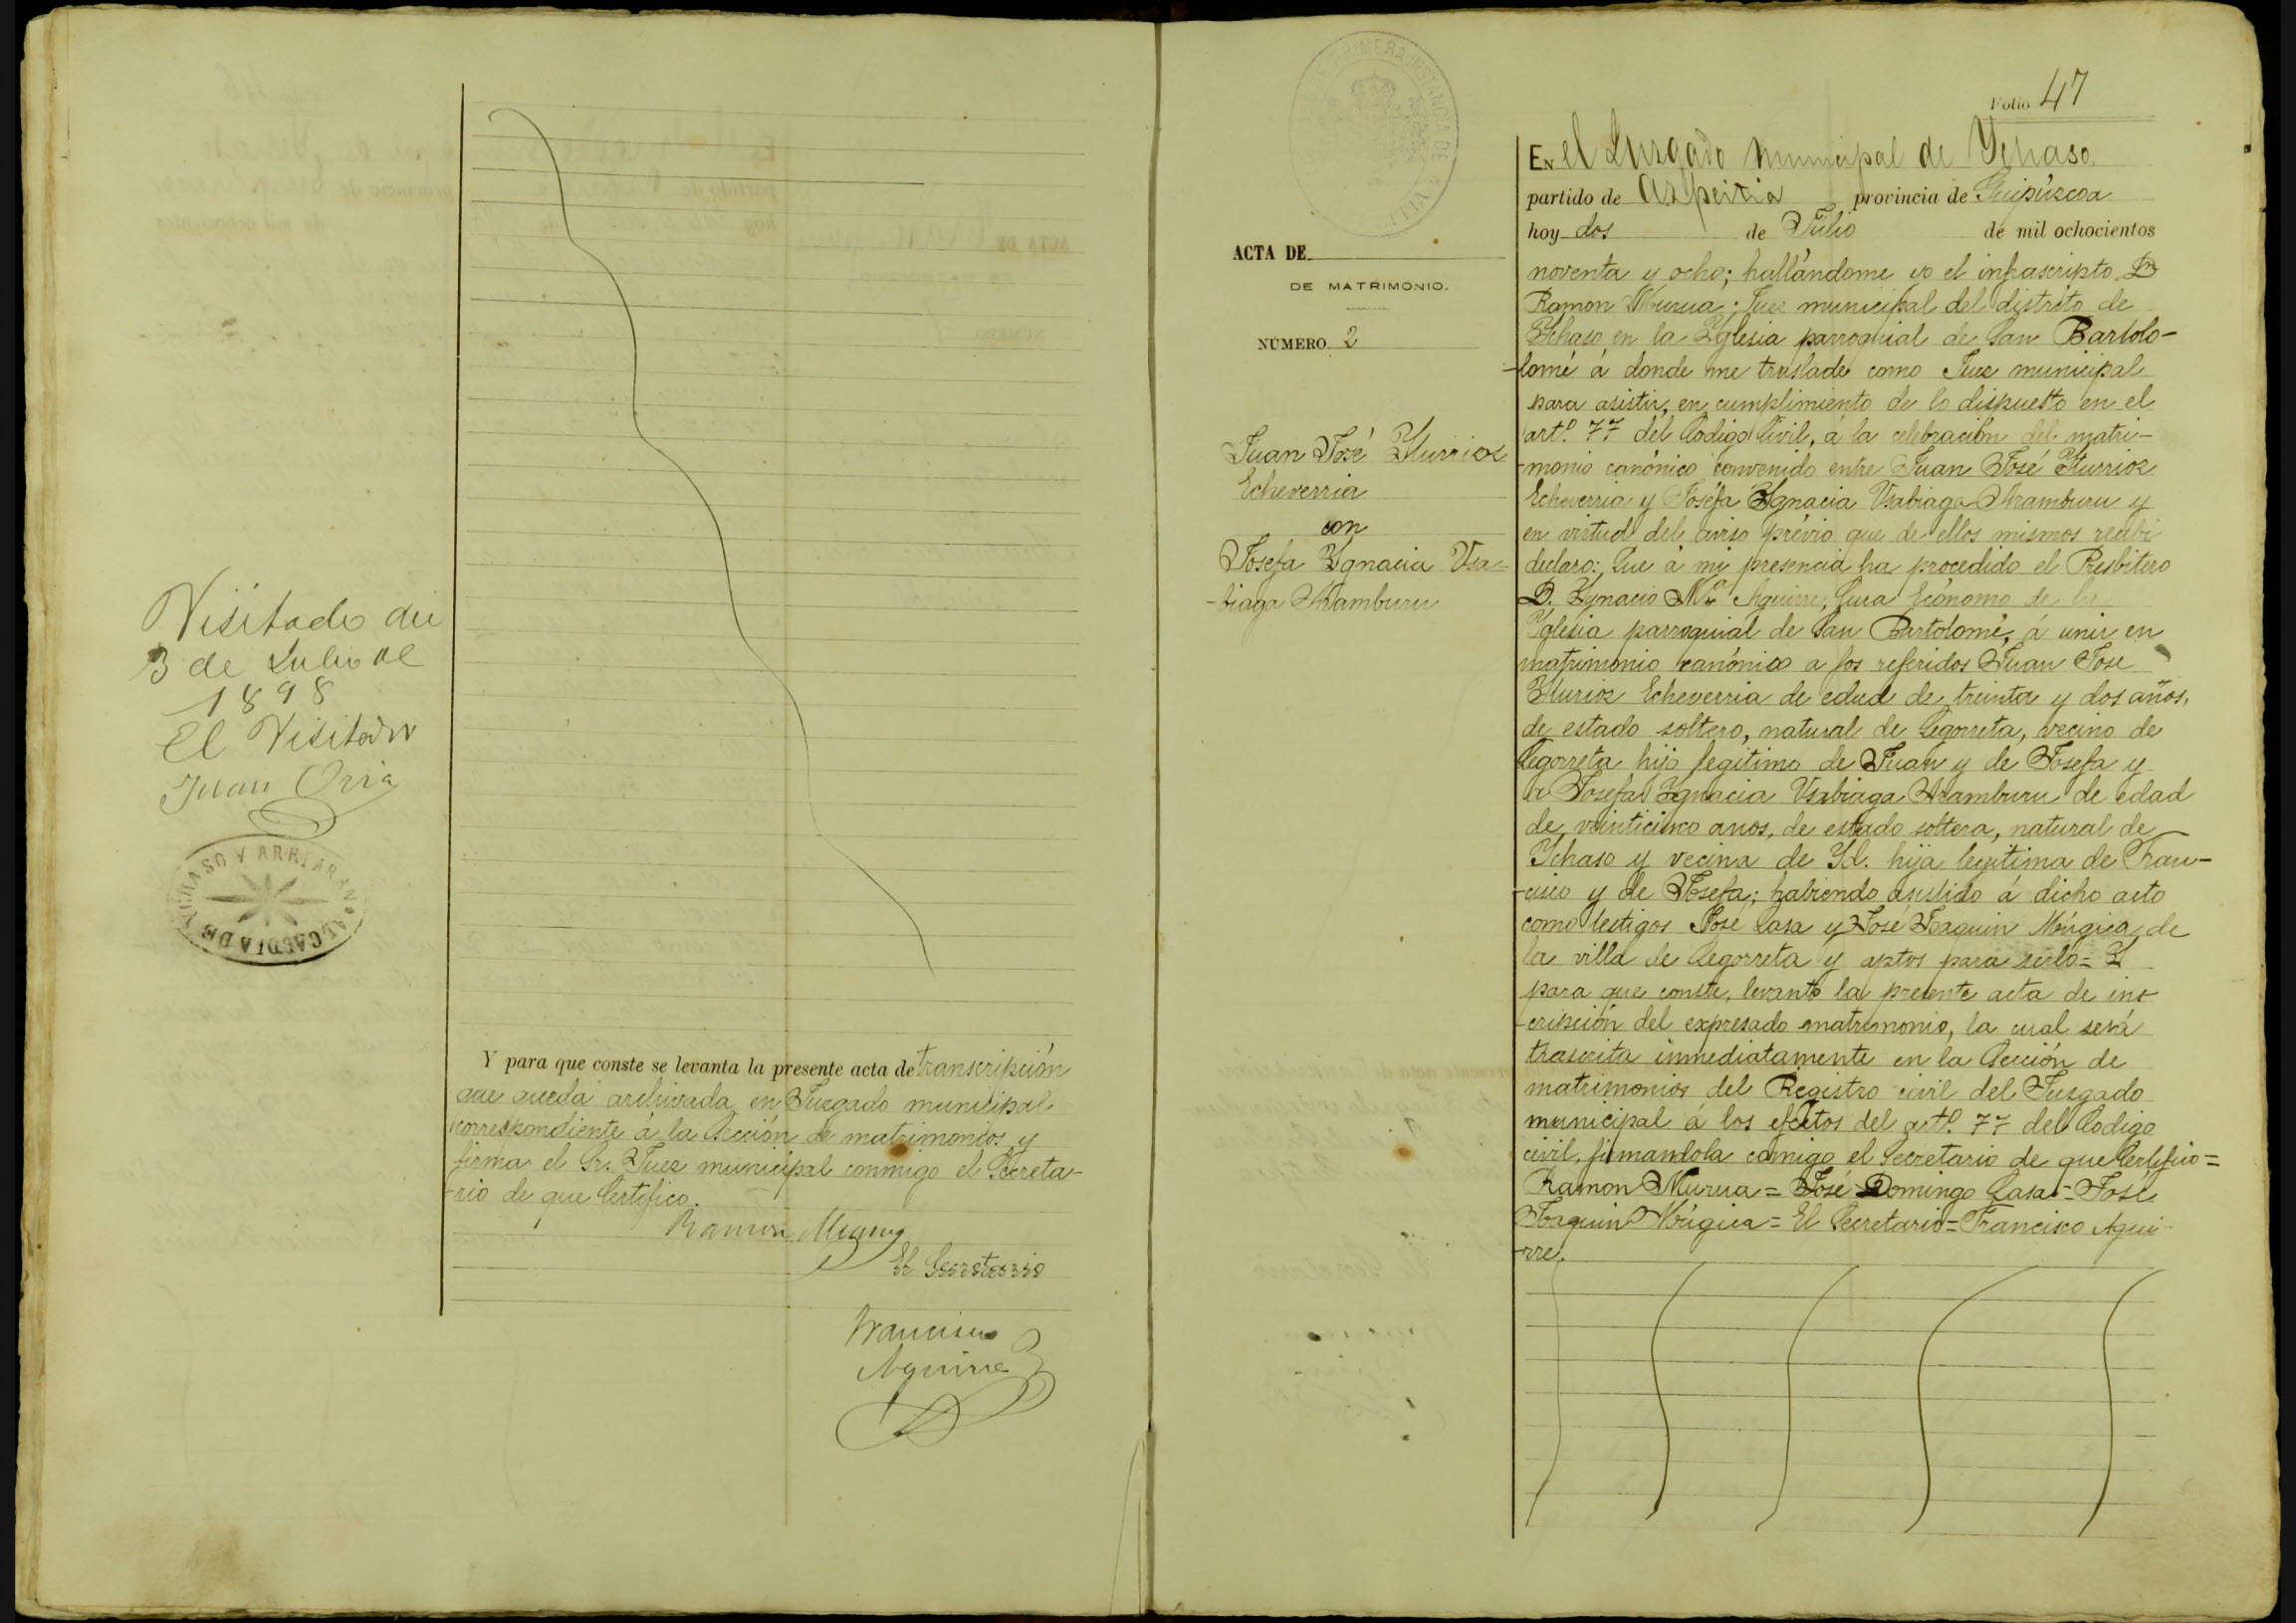 Y para que conste se levanta la presente acta de transcripción
que queda archivada en Juzgado municipal
correspondiente á la Sección de matrimonios y
firma el Sr. Juez municipal conmigo el Secreta-
-rio de que Certifico.
Ramon Murua
El Secretario
Francisco
Aguirre
Visitado
3 de Julio de
1898
El Visitador
Juan Oria
ALCALDIA DE YCHASO Y ARRIARAN
Folio 47
JUZGADO DE PRIMERA INSTANCIA DE
ACTA DE
DE MATRIMONIO.
NÚMERO 2
Juan José Yturrioz
Echeverria
con
Josefa Ygnacia Usa-
-biaga Aramburu
En el Juzgado municipal de Ychaso
partido de Azpeitia provincia de Guipúzcoa
hoy dos de Julio de mil ochocientos
noventa y ocho; hallándome yo el infrascripto Dn
Ramon Murua, Juez municipal del distrito de
Ychaso en la Yglesia parroquial de San Bartolo-
-lomé á donde me traslade como Juez municipal
para asistir, en cumplimiento de lo dispuesto en el
artº. 77 del Codigo Civil, á la celebración del matri-
-monio canónico convenido entre Juan José Yturrioz
Echeverria y Josefa Ygnacia Usabiaga Aramburu y
en virtud del aviso prévio que de ellos mismos recibi
declaro: Que á mi presencia ha procedido el Presbitero
D. Ygnacio Mª Aguirre, Cura Ecónomo de la
Yglesia parroquial de San Bartolomé, á unir en
matrimonio canónico a los referidos Juan Jose
Yturrioz Echeverria de edad de treinta y dos años,
de estado soltero, natural de Legorreta, vecino de
Legorreta hijo legitimo de Juan y de Josefa y
a Josefa Ygnacia Usabiaga Aramburu de edad
de veinticinco anos, de estado soltera, natural de
Ychaso y vecina de Yd. hija legitima de Fran-
-cisco y de Josefa; habiendo asistido á dicho acto
como testigos José Lasa y José Joaquin Múgica, de
la villa de Legorreta y aptos para serlo= Y
para que conste, levanto la presente acta de ins-
-cripción del expresado matrimonio, la cual será
trascrita inmediatamente en la Sección de
matrimonios del Registro civil del Juzgado
municipal á los efectos del artº. 77 del Codigo
civil, firmandola comigo el Secretario de que Certifico=
Ramon Murua= José Domingo Lasa= José
Joaquin Múgica= El Secretario= Francisco Agui-
-rre.